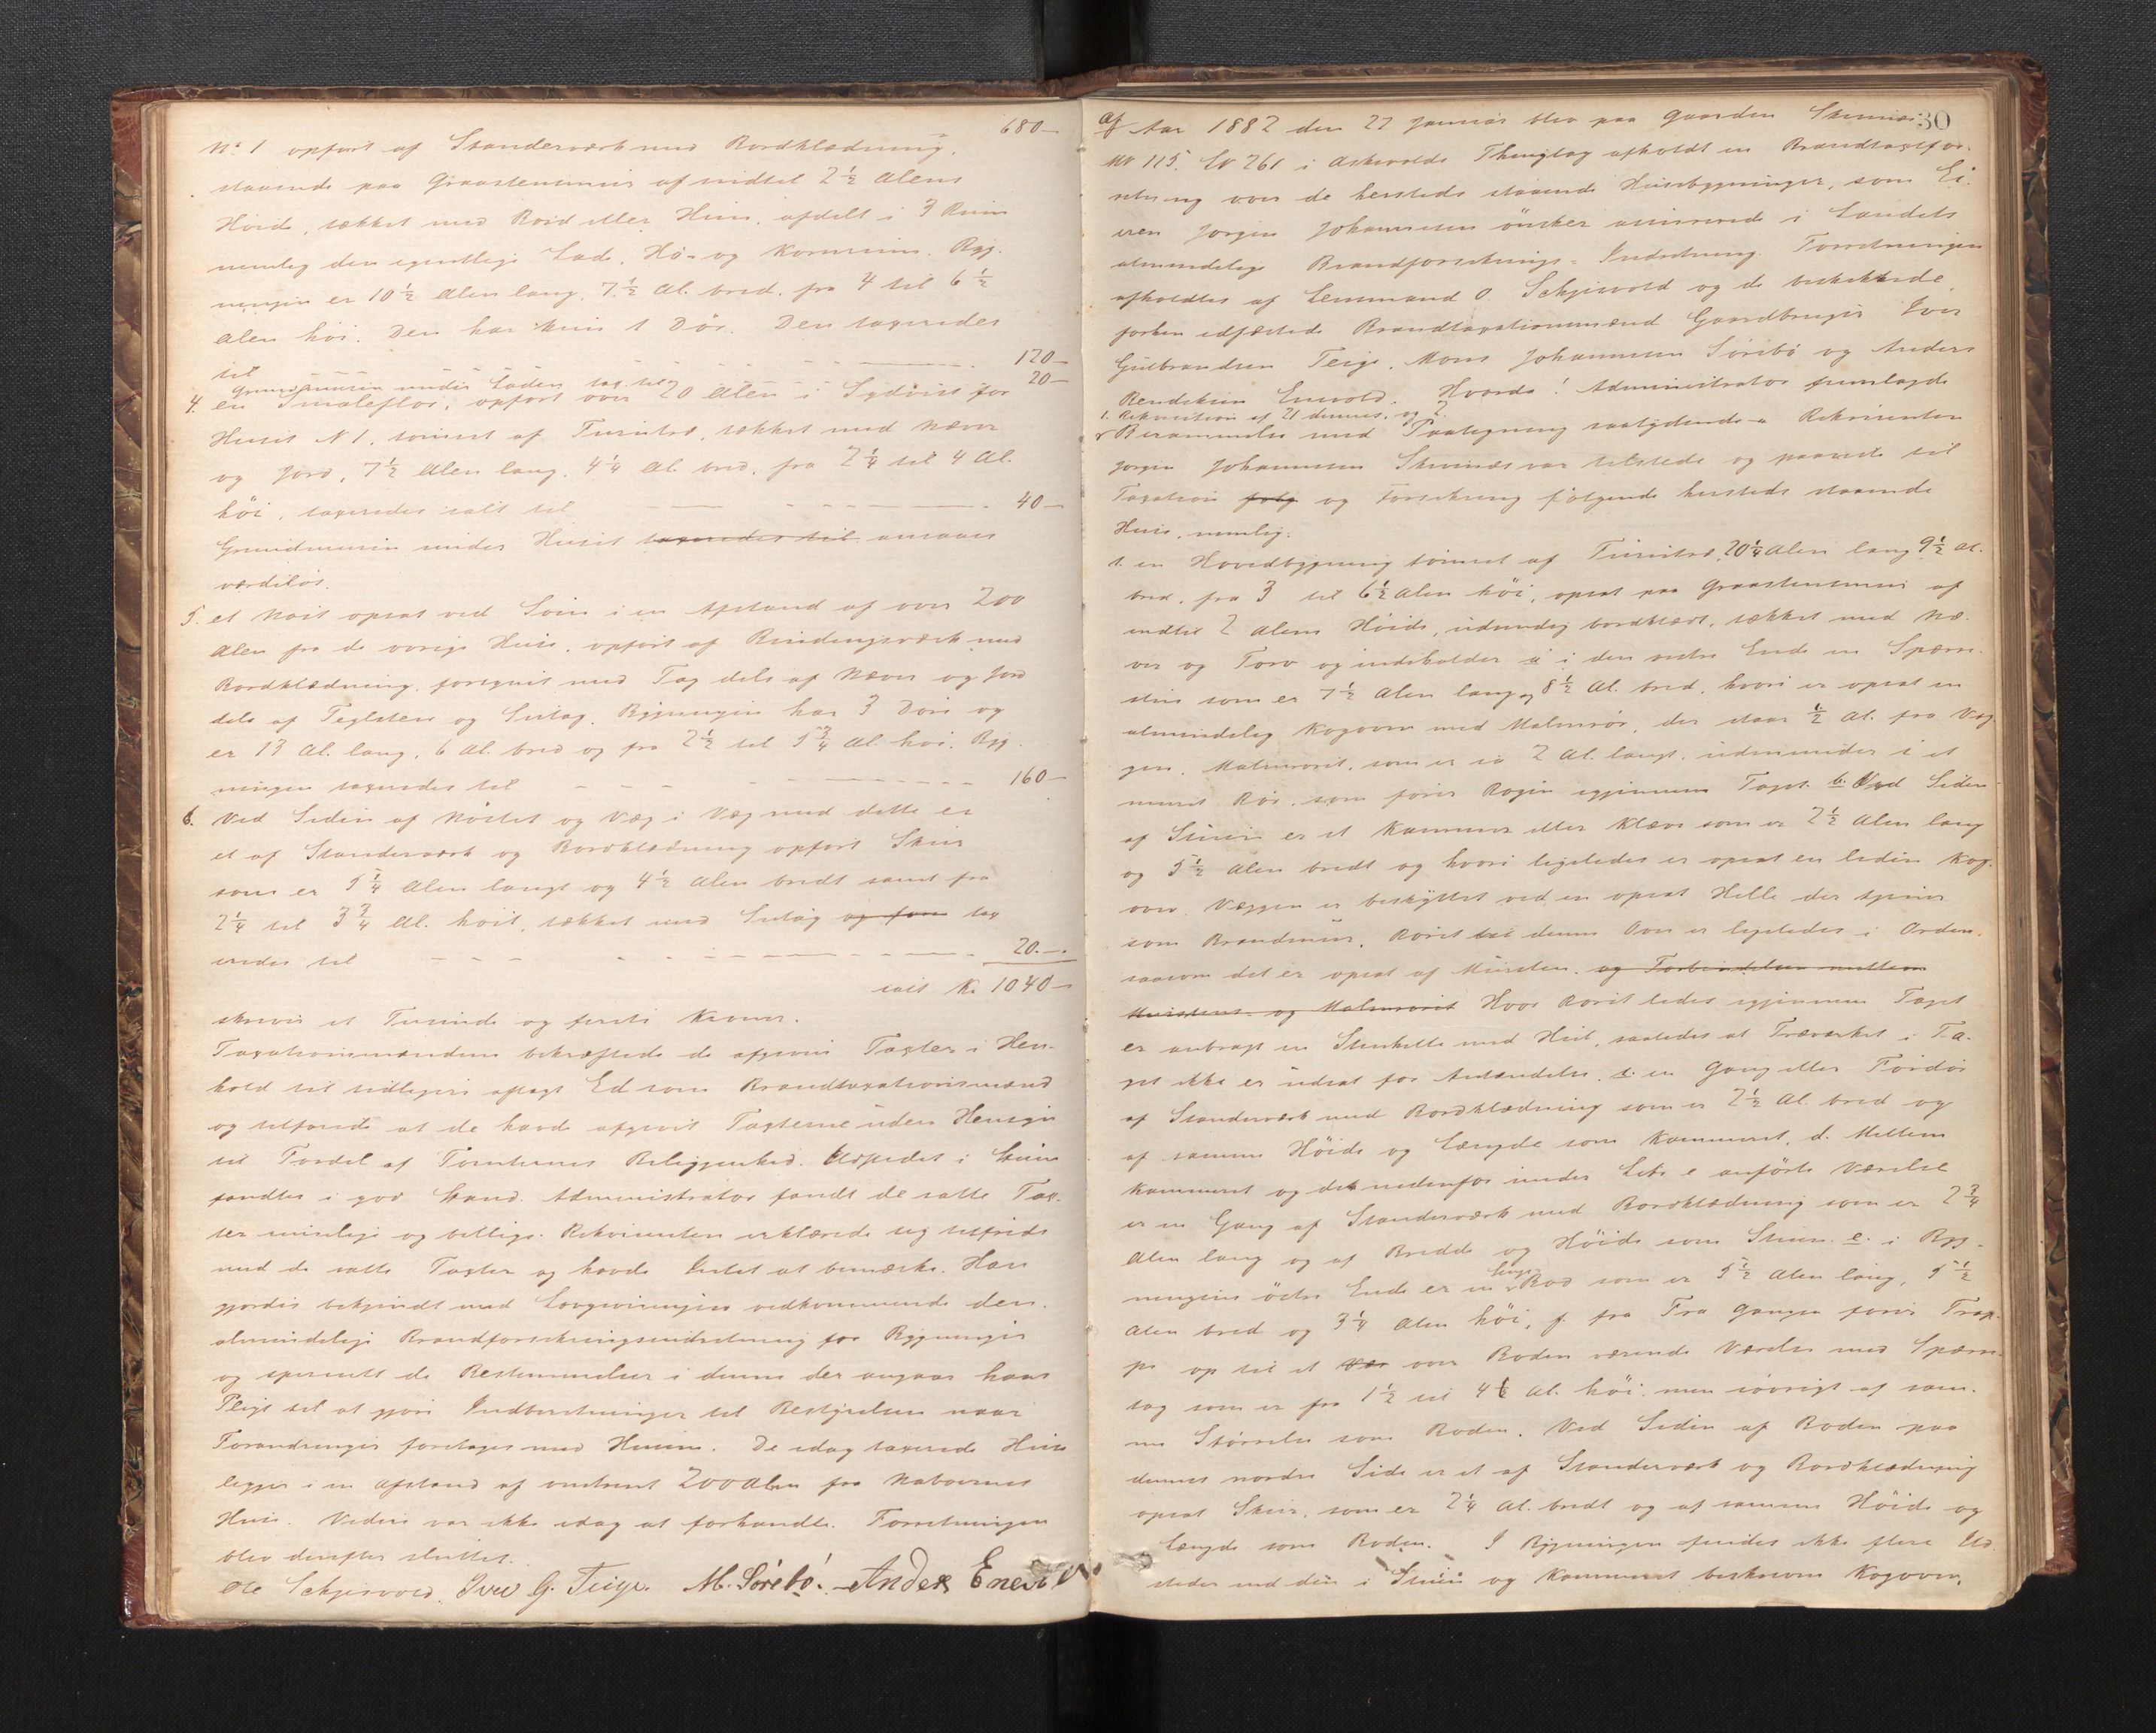 680-
No 1 opført af Standerværk med Bordklædning,
staaende paa Graastensmur af indtil 2 1/2 Alens
Høide, tækket med Bord eller Hun, afdelt i 3 Rum
nemlig den egentlige Lade, Hø- og Kornrum. Byg-
ningen er 10 1/2 Alen lang, 7 1/2 Al. bred, fra 4 til 6 1/2
Alen høi. Den har kun 1 Dör. Den taxeredes
til - - - 120-
Grundmuren under Laden tax. til 20-
4. en Smaleflor, opført over 20 Alen i Sydvest for
Huset N 1, tømret af Furutræ, tækket med Næver
og Jord, 7 1/2 Alen lang, 4 1/4 Al. bred, fra 2 1/4 til 4 Al.
höi, taxeredes ialt til - - - 40-
Grundmuren under Huset taxeredes til ansaaes
værdiløs.
5. et Nøst opsat ved Søen i en Afstand af over 200
Alen fra de øvrige Huse, opført af Bindingsværk med
Bordklædning, forsynet med Tag dels af Næver og Jord
dels af Teglsten og Sutag. Bygningen har 3 Döre og
er 13 Al. lang, 6 Al. bred og fra 2 1/2 til 5 3/4 Al. høi. Byg-
ningen taxeredes til - - - 160-
6. Ved Siden af Nöstet og Væg i Væg med dette er
et af Standerværk og Bordklædning opført Skur
som er 5 1/4 Alen langt og 4 1/2 Alen bredt samt fra
2 1/4 til 3 3/4 Al. höit, tækket med Sutag og foru tax
eredes til - - - 20.-
ialt Kr. 1040-
skriver et Tusinde og førti Kroner.
Taxationsmændene bekræftede de afgivne Taxter i Hen-
hold til tidligere aflagt Ed som Brandtaxationsmænd
og tilføiede at de havde afgivet Taxterne uden Hensyn
til Fordel af Tomternes Beliggenhed. Ildstedet i Stuen
fandtes i god Stand. Administrator fandt de satte Tax-
ter rimelige og billige. Rekvirenten erklærede sig tilfreds
med de satte Taxter og havde Intet at bemærke. Han
gjordes bekjendt med Lovgivningen vedkommende den
almindelige Brandforsikringsindretning for Bygninger
og specielt de Bestemmelser i denne der angaar hans
Pligt til at gjøre Indberetninger til Bestyrelsen naar
Forandringer foretages med Husene. De idag taxerede Huse
ligger i en Afstand af omtrent 200 Alen fra Naboernes
Huse. Videre var ikke idag at forhandle. Forretningen
blev derefter sluttet.
Ole Schjervold. Iver G. Teige. M. Sörebö. Anders Enevol
30
Aar 1882 den 27 Januar blev paa Gaarden
M No 115. Lo 261 i Askevolds Thinglag afholdt en Brandtaxtfor-
retning over de hersteds staaende Husebygninger, som Ei-
eren Jørgen Johannessen önsker assurerede i Landets
almindelige Brandforsikrings-Indretning. Forretningen
afholdtes af Lensmand O. Schjervold og de beskikkede,
forhen edfæstede Brandtaxationsmænd Gaardbruger Iver
Gulbrandsen Teige, Mons Johannessen Sörebö og Anders
Bendiksen Enevold. Hvorda! Administrator fremlagde
1. Rekvisition af 21 dennes, og 2.
Berammelse med Paategning saalydende - Rekvirenten
Jørgen Johannessen var tilstede og paaviste til
Taxation følg og Forsikring følgende hersteds staaende
Huse, nemlig:
1. en Hovedbygning tømret af Furutræ, 20 1/4 Alen lang 9 1/2 Al.
bred, fra 3 til 6 1/2 Alen höi, opsat paa Graastensmur af
indtil 2 Alens Høide, udvendig bordklædt, tækket med Næ-
ver og Torv og indeholder a i den vestre Ende en Spærre-
stue som er 7 1/2 Alen lang og 8 1/2 Al. bred, hvori er opsat en
almindelig Kogovn med Malmrör, der staar 1/2 Al. fra Væg-
gen. Malmröret, som er ca 2 Al. langt, udmunder i et
muret Rör, som förer Rögen igjennem Taget. b. Ved Siden
af Stuen er et Kammer eller Kleve som er 2 1/2 Alen lang
og 5 1/2 Alen bredt og hvori ligeledes er opsat en liden Kog-
ovn. Væggen er beskyttet ved en opsat Helle der tjener
som Brandmur. Röret til denne Ovn er ligeledes i Orden,
saasom det er opsat af Mursten. og Forbindelsen mellem
Murstens- og Malmröret Hvor Röret ledes igjennem Taget
er anbragt en Stenhelle med Hul, saaledes at Træværket i Ta-
get ikke er udsat for Antændelse. c. en Gang eller Fordör
af Standerværk med Bordklædning som er 2 1/2 Al. bred og
af samme Höide og Længde som Kammeret. d. Mellem
Kammeret og det nedenfor under Litr. e anförte Værelse
er en Gang af Standerværk med Bordklædning som er 2 3/4
Alen lang og af Bredde og Höide som Stuen. e. i Byg-
ningens östre Ende er en Bod som er 5 1/2 Alen lang, 5 1/2
Alen bred og 3 1/4 Alen höi, f. fra Fra Gangen förer Trap-
pe op til et Vær over Boden værende Værelse med Spærre-
tag som er fra 1 1/2 til 4 Al. höi, men iövrigt af sam-
me Störrelse som Boden. Ved Siden af Boden paa
dennes nordre Side er et af Standerværk og Bordklædning
opsat Skur, som er 2 1/4 Al. bredt og af samme Höide og
Længde som Boden. I Bygningen findes ikke flere Ild-
steder end den i Stuen og Kammeret beskrevne Kogovn,